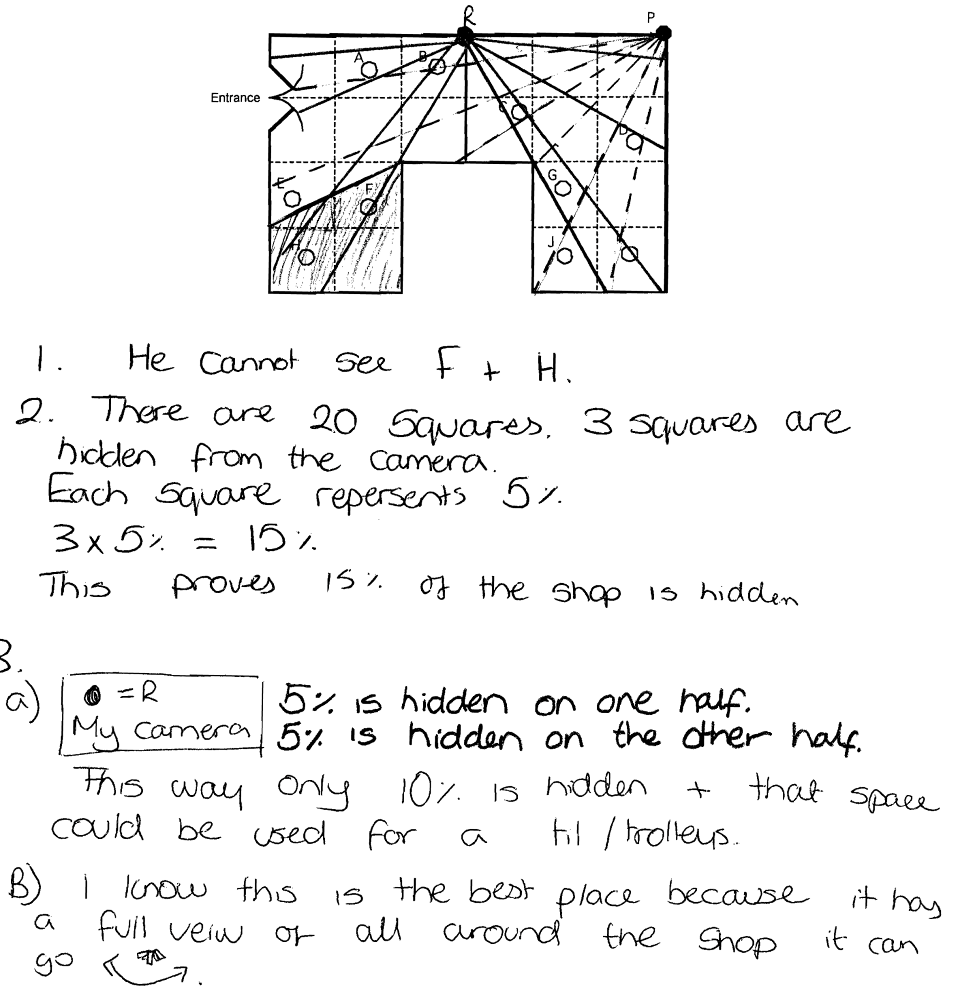 R P
A B
Entrance C
D
E F G
H J
1. He Cannot see F + H.
2. There are 20 squares. 3 squares are
hidden from the camera.
Each square repersents 5%
3 x 5% = 15%
This proves 15% of the shop is hidden
3.
a) ● = R 5% is hidden on one half.
My camera 5% is hidden on the other half.
This way only 10% is hidden + that space
could be used for a til / trolleys.
B) I know this is the best place because it has
a full veiw of all around the shop it can
go